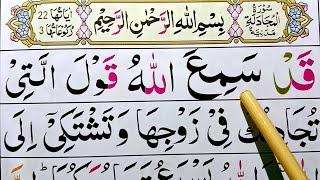 سُورَةُ المُجَادَلَةِ مَدَنِيَّة
بِسْمِ اللهِ الرَّحْمٰنِ الرَّحِيْمِ
اٰيَاتُهَا 22
رُكُوْعَاتُهَا 3
قَدْ سَمِعَ اللهُ قَوْلَ الَّتِىْ
تُجَادِلُكَ فِىْ زَوْجِهَا وَتَشْتَكِىْٓ اِلَى